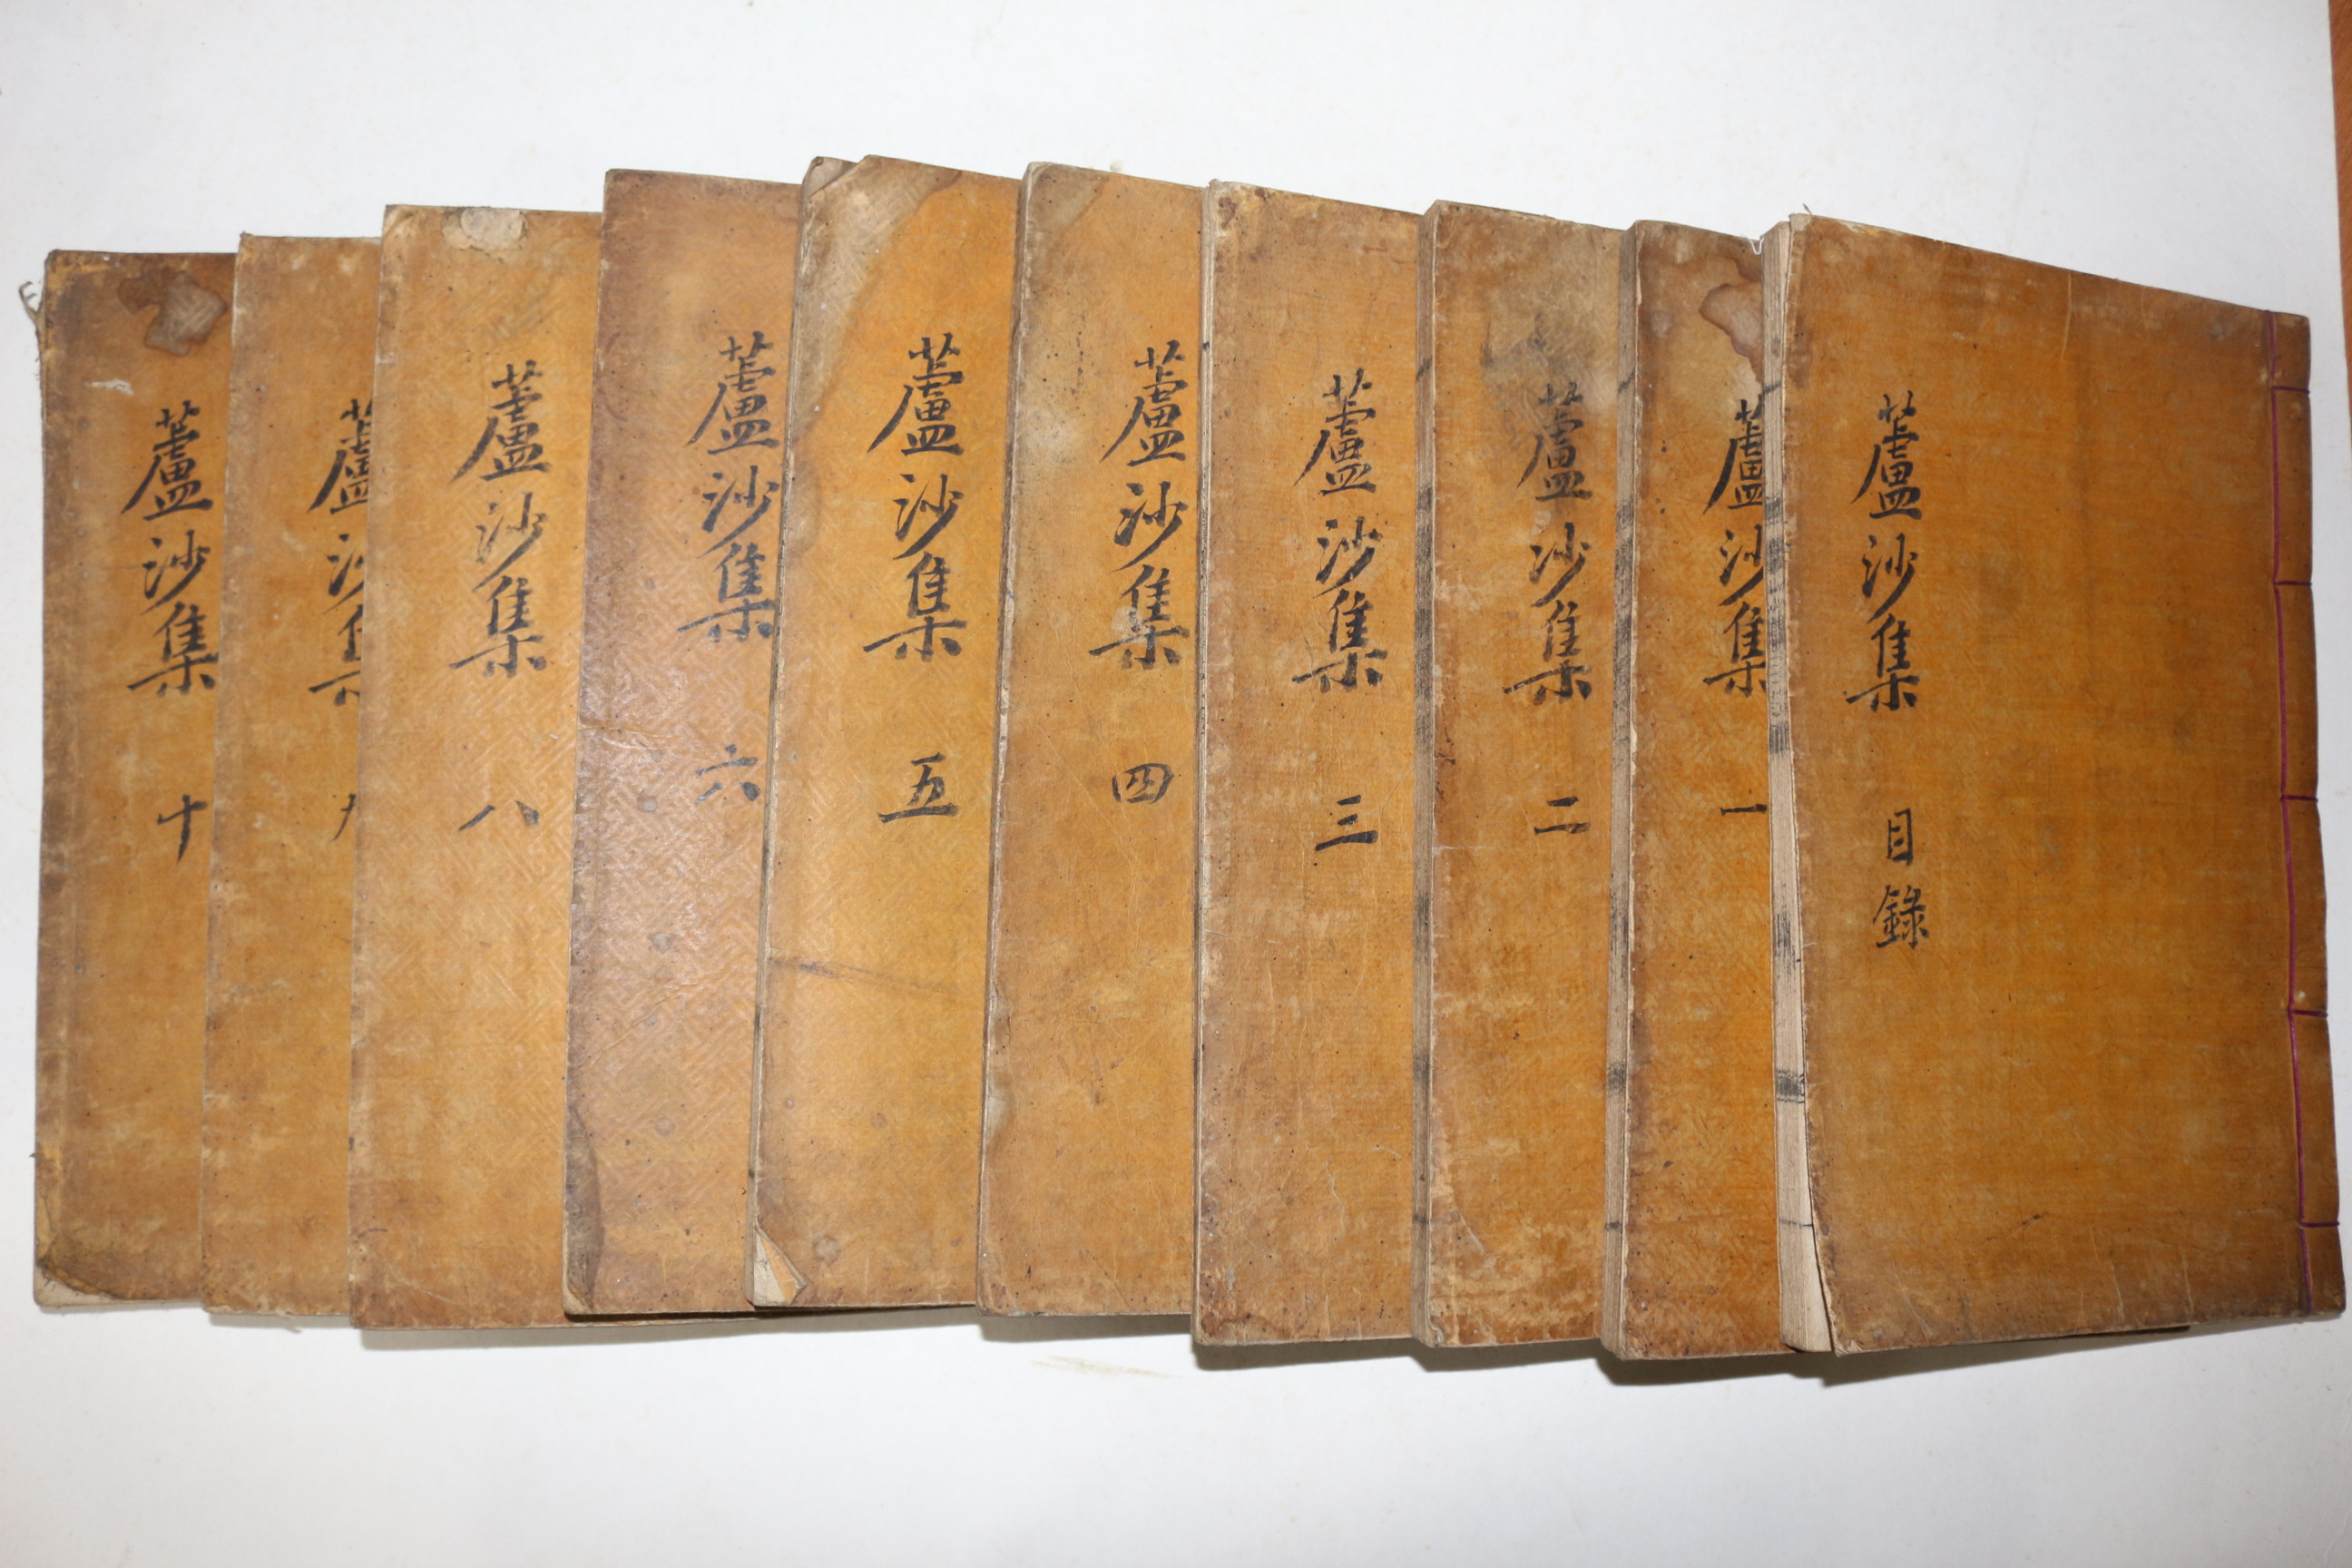 蘆沙集 目錄
蘆沙集 一
蘆沙集 二
蘆沙集 三
蘆沙集 四
蘆沙集 五
蘆沙集 六
蘆沙集 八
蘆沙集 九
蘆沙集 十